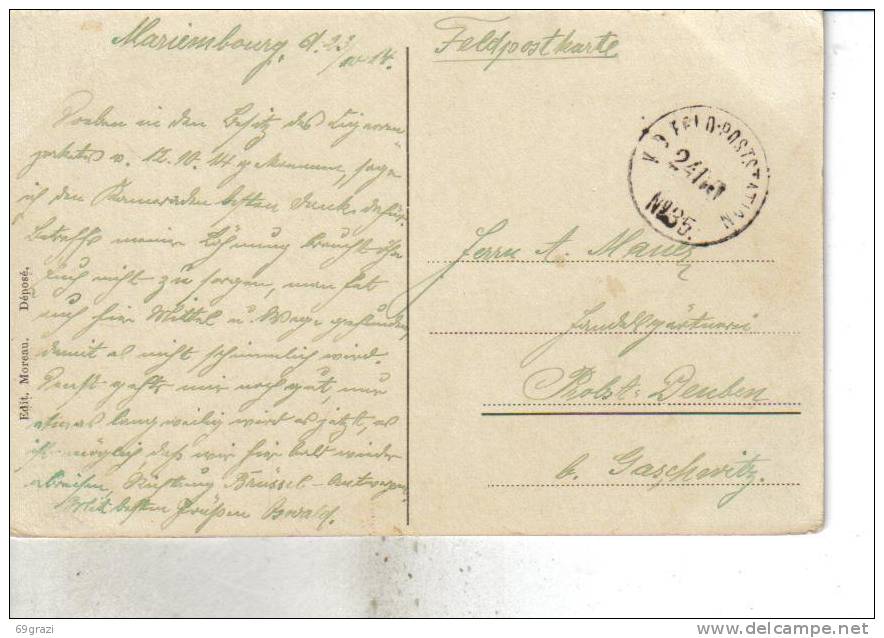 Mariembourg, d. 23/10 14.
Soeben in den Besitz des Zigarren
paketes v. 12.10.14 gekommen, sage
ich den Kameraden besten Dank dafür.
Betreffs meiner Löhnung braucht ihr
Euch nicht zu sorgen, man hat
auch hier Mittel u. Wege gefunden,
damit es nicht schimmlich wird.
Sonst geht's mir noch gut, nur
etwas langweilig wird es jetzt, es
ist möglich, daß wir hier bald wieder
abreisen, Richtung Brüssel-Antwerpen
Mit besten Grüßen Oswald.
Edit. Moreau. Déposé.
Feldpostkarte
K. D. FELD-POSTSTATION
24/10
No 35.
Herrn A. Mautz
Handelsgärtnerei
Probst-Deuben
b. Gaschwitz.
69grazi
delcampe.net